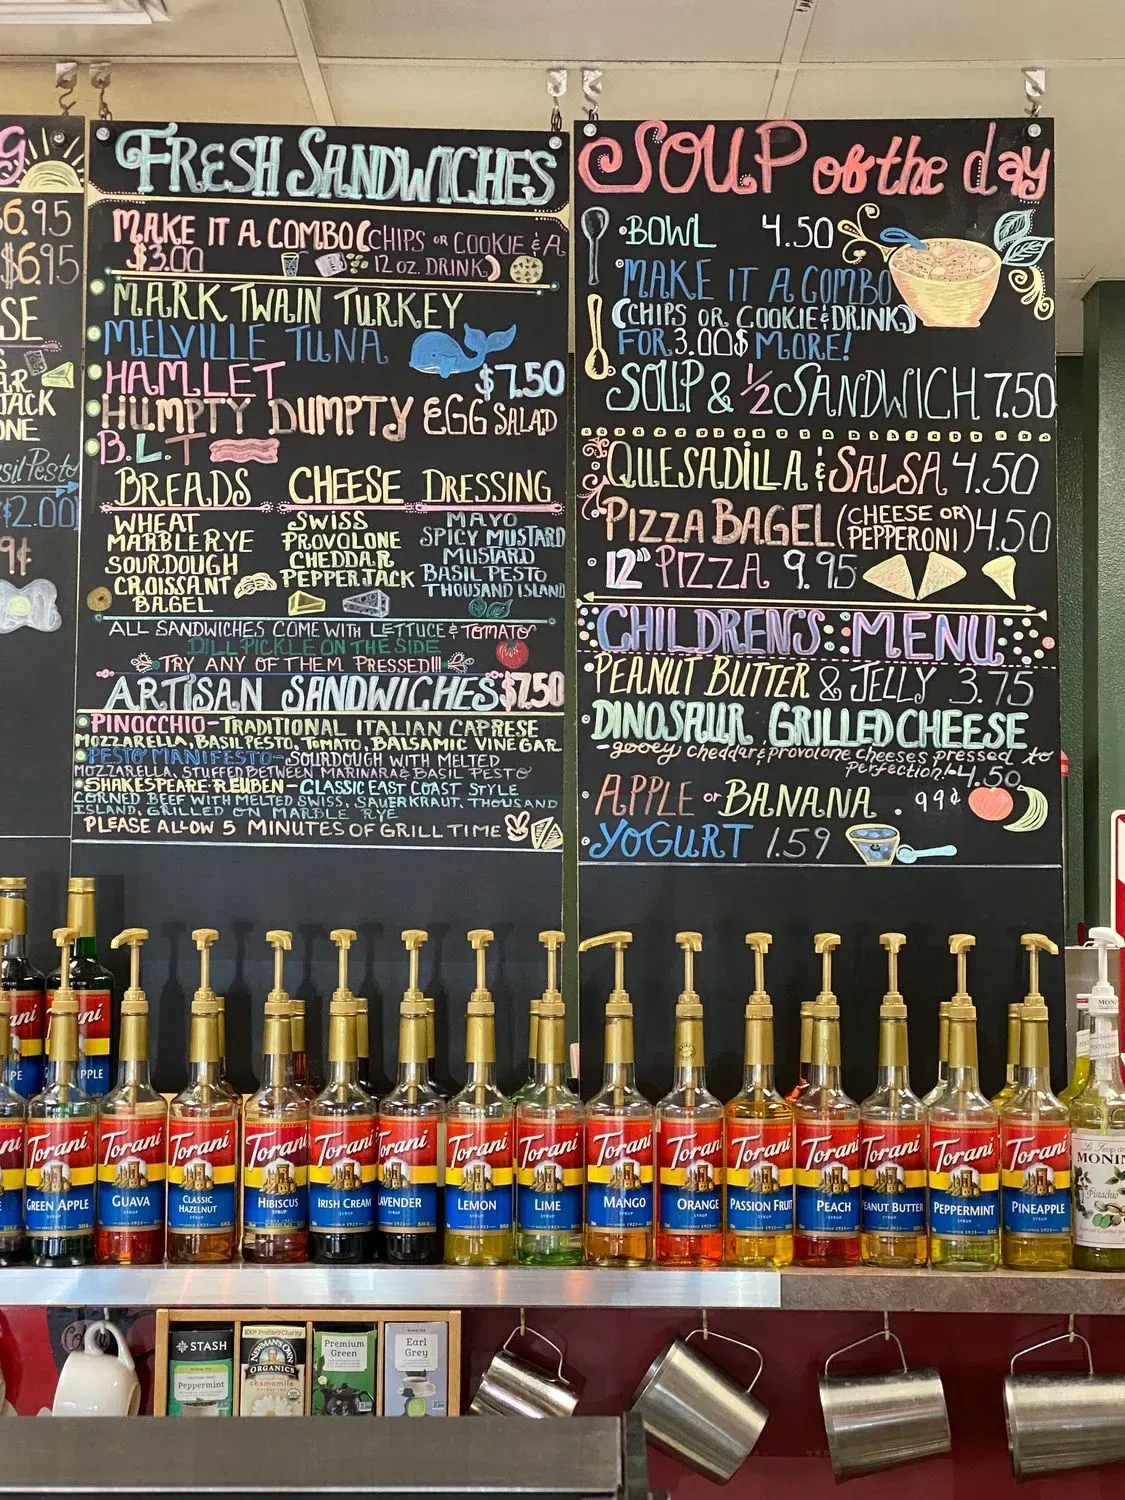 G
6.95
$6.95
SE
S
AR
JACK
ONE
sil Pesto
$2.00
9¢
FRESH SANDWICHES
MAKE IT A COMBO (CHIPS OR COOKIE & A
$3.00 12 OZ. DRINK)
MARK TWAIN TURKEY
MELVILLE TUNA
HAMLET $7.50
HUMPTY DUMPTY EGG SALAD
B.L.T
BREADS CHEESE DRESSING
WHEAT SWISS MAYO
MARBLE RYE PROVOLONE SPICY MUSTARD
SOURDOUGH CHEDDAR MUSTARD
CROISSANT PEPPER JACK BASIL PESTO
BAGEL THOUSAND ISLAND
ALL SANDWICHES COME WITH LETTUCE & TOMATO
DILL PICKLE ON THE SIDE
TRY ANY OF THEM PRESSED!!!
ARTISAN SANDWICHES $7.50
PINOCCHIO-TRADITIONAL ITALIAN CAPRESE
MOZZARELLA, BASIL PESTO, TOMATO, BALSAMIC VINEGAR
PESTO MANIFESTO- SOURDOUGH WITH MELTED
MOZZARELLA, STUFFED BETWEEN MARINARA & BASIL PESTO
SHAKESPEARE REUBEN-CLASSIC EAST COAST STYLE
CORNED BEEF WITH MELTED SWISS, SAUERKRAUT, THOUSAND
ISLAND, GRILLED ON MARBLE RYE
PLEASE ALLOW 5 MINUTES OF GRILL TIME
SOUP of the day
BOWL 4.50
MAKE IT A COMBO
(CHIPS OR COOKIE & DRINK)
FOR 3.00$ MORE!
SOUP & 1/2 SANDWICH 7.50
QUESADILLA & SALSA 4.50
PIZZA BAGEL (CHEESE OR PEPPERONI) 4.50
12" PIZZA 9.95
CHILDREN'S MENU
PEANUT BUTTER & JELLY 3.75
DINOSAUR GRILLED CHEESE
-gooey cheddar & provolone cheeses pressed to
perfection!-4.50
APPLE or BANANA .99¢
YOGURT 1.59
ani
ani
PE
PPLE
Torani GREEN APPLE SYRUP
Torani GUAVA SYRUP
Torani CLASSIC HAZELNUT SYRUP
Torani HIBISCUS SYRUP
Torani IRISH CREAM SYRUP
Torani LAVENDER
Torani LEMON SYRUP
Torani LIME SYRUP
Torani MANGO SYRUP
Torani ORANGE SYRUP
Torani PASSION FRUIT SYRUP
Torani PEACH SYRUP
Torani PEANUT BUTTER SYRUP
Torani PEPPERMINT SYRUP
Torani PINEAPPLE SYRUP
MONIN
Le Sirop de
MONIN
Pistachio
STASH
Peppermint
100% Profits to Charity
NEWMAN'S OWN
ORGANICS
chamomile
Premium
Green
Earl
Grey